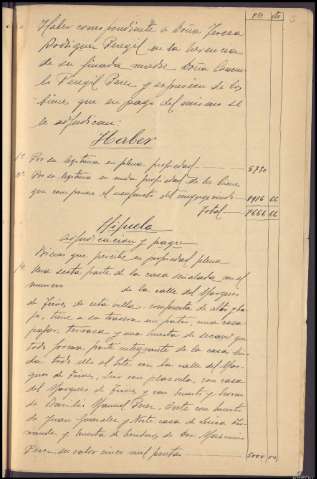 Pts Cts
Haber correspondiente a Doña Teresa
Rodriguez Peregil en la herencia
de su finada madre Doña
Peregil Perez y expresion de los
bienes que en pago del mismo se
le adjudican:
Haber
1º Por su legitima en plena propiedad 5750
2º Por su legitima en nuda propiedad de los bienes
que componen el usufructo del conyuge viudo 1916 66
Total 7666 66
Hijuela
Adjudicacion y pago
Bienes que percibe en propiedad plena
1º Una sexta parte de la casa señalada con el
numero de la calle del Marques
de de esta villa, compuesta de alto y ba-
jo, tiene a su trasera un patio, una casa
pajar, terraza y una huerta de secano que
todo forma parte integrante de la casa, lin-
da: todo ello al Este con la calle del Mar-
ques de Sur con plazuela, con casa
del Marques de y con huerto y horno
de Manuel Perez, Oeste con huerto
de Juan Gonzalez y Norte casa de
y huerta de herederos de Don
Perez, su valor cinco mil pesetas 5000 00